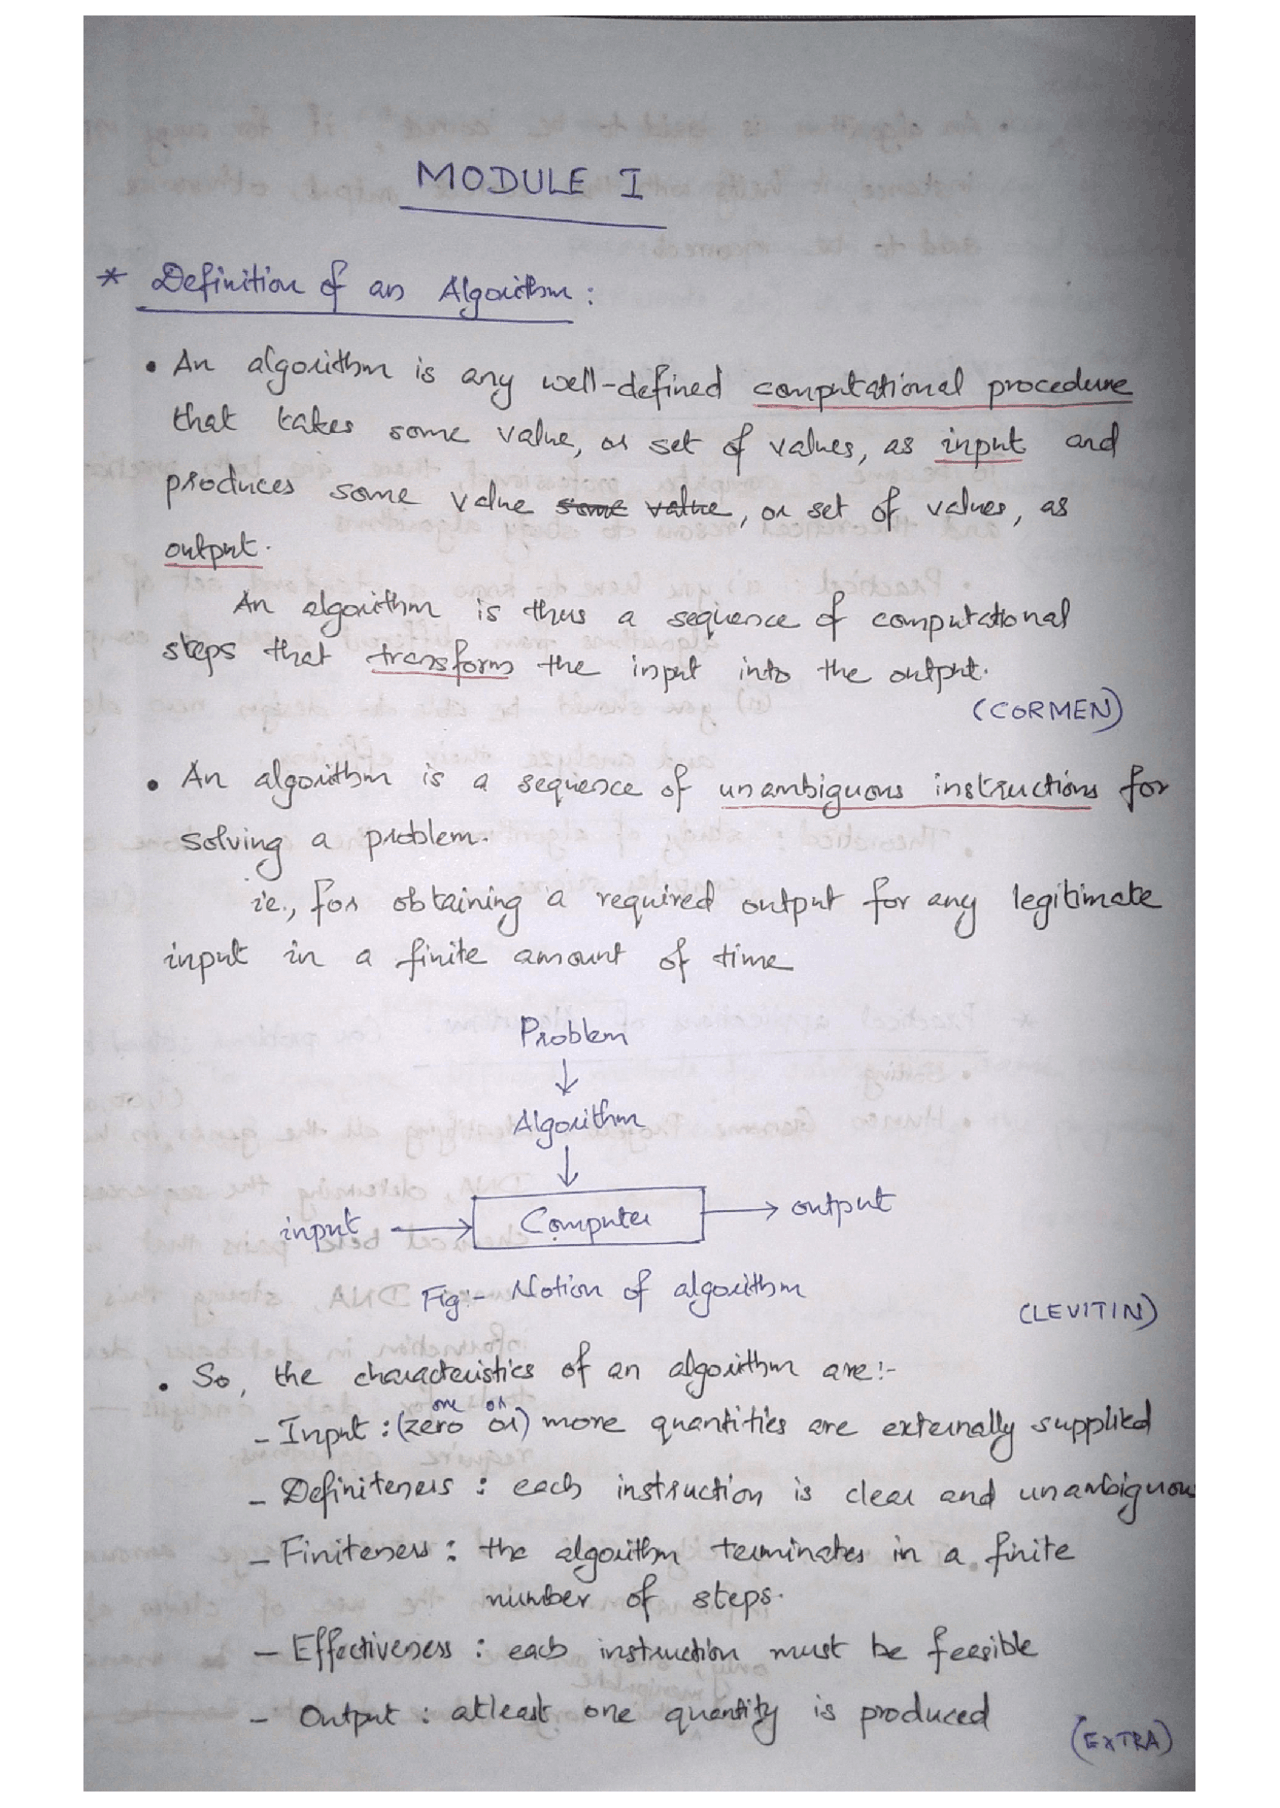 MODULE I
* Definition of an Algorithm :
• An algorithm is any well-defined computational procedure
that takes some value, or set of values, as input and
produces some value some value, or set of values, as
output.
An algorithm is thus a sequence of computational
steps that transform the input into the output.
(CORMEN)
• An algorithm is a sequence of unambiguous instructions for
solving a problem.
ie., for obtaining a required output for any legitimate
input in a finite amount of time
Problem
↓
Algorithm
↓
input → Computer → output
Fig:- Notion of algorithm
(LEVITIN)
• So, the characteristics of an algorithm are:-
one or
- Input : (zero or) more quantities are externally supplied
- Definiteness : each instruction is clear and unambiguous
- Finiteness : the algorithm terminates in a finite
number of steps.
- Effectiveness : each instruction must be feesible
- Output : atleast one quantity is produced
(EXTRA)